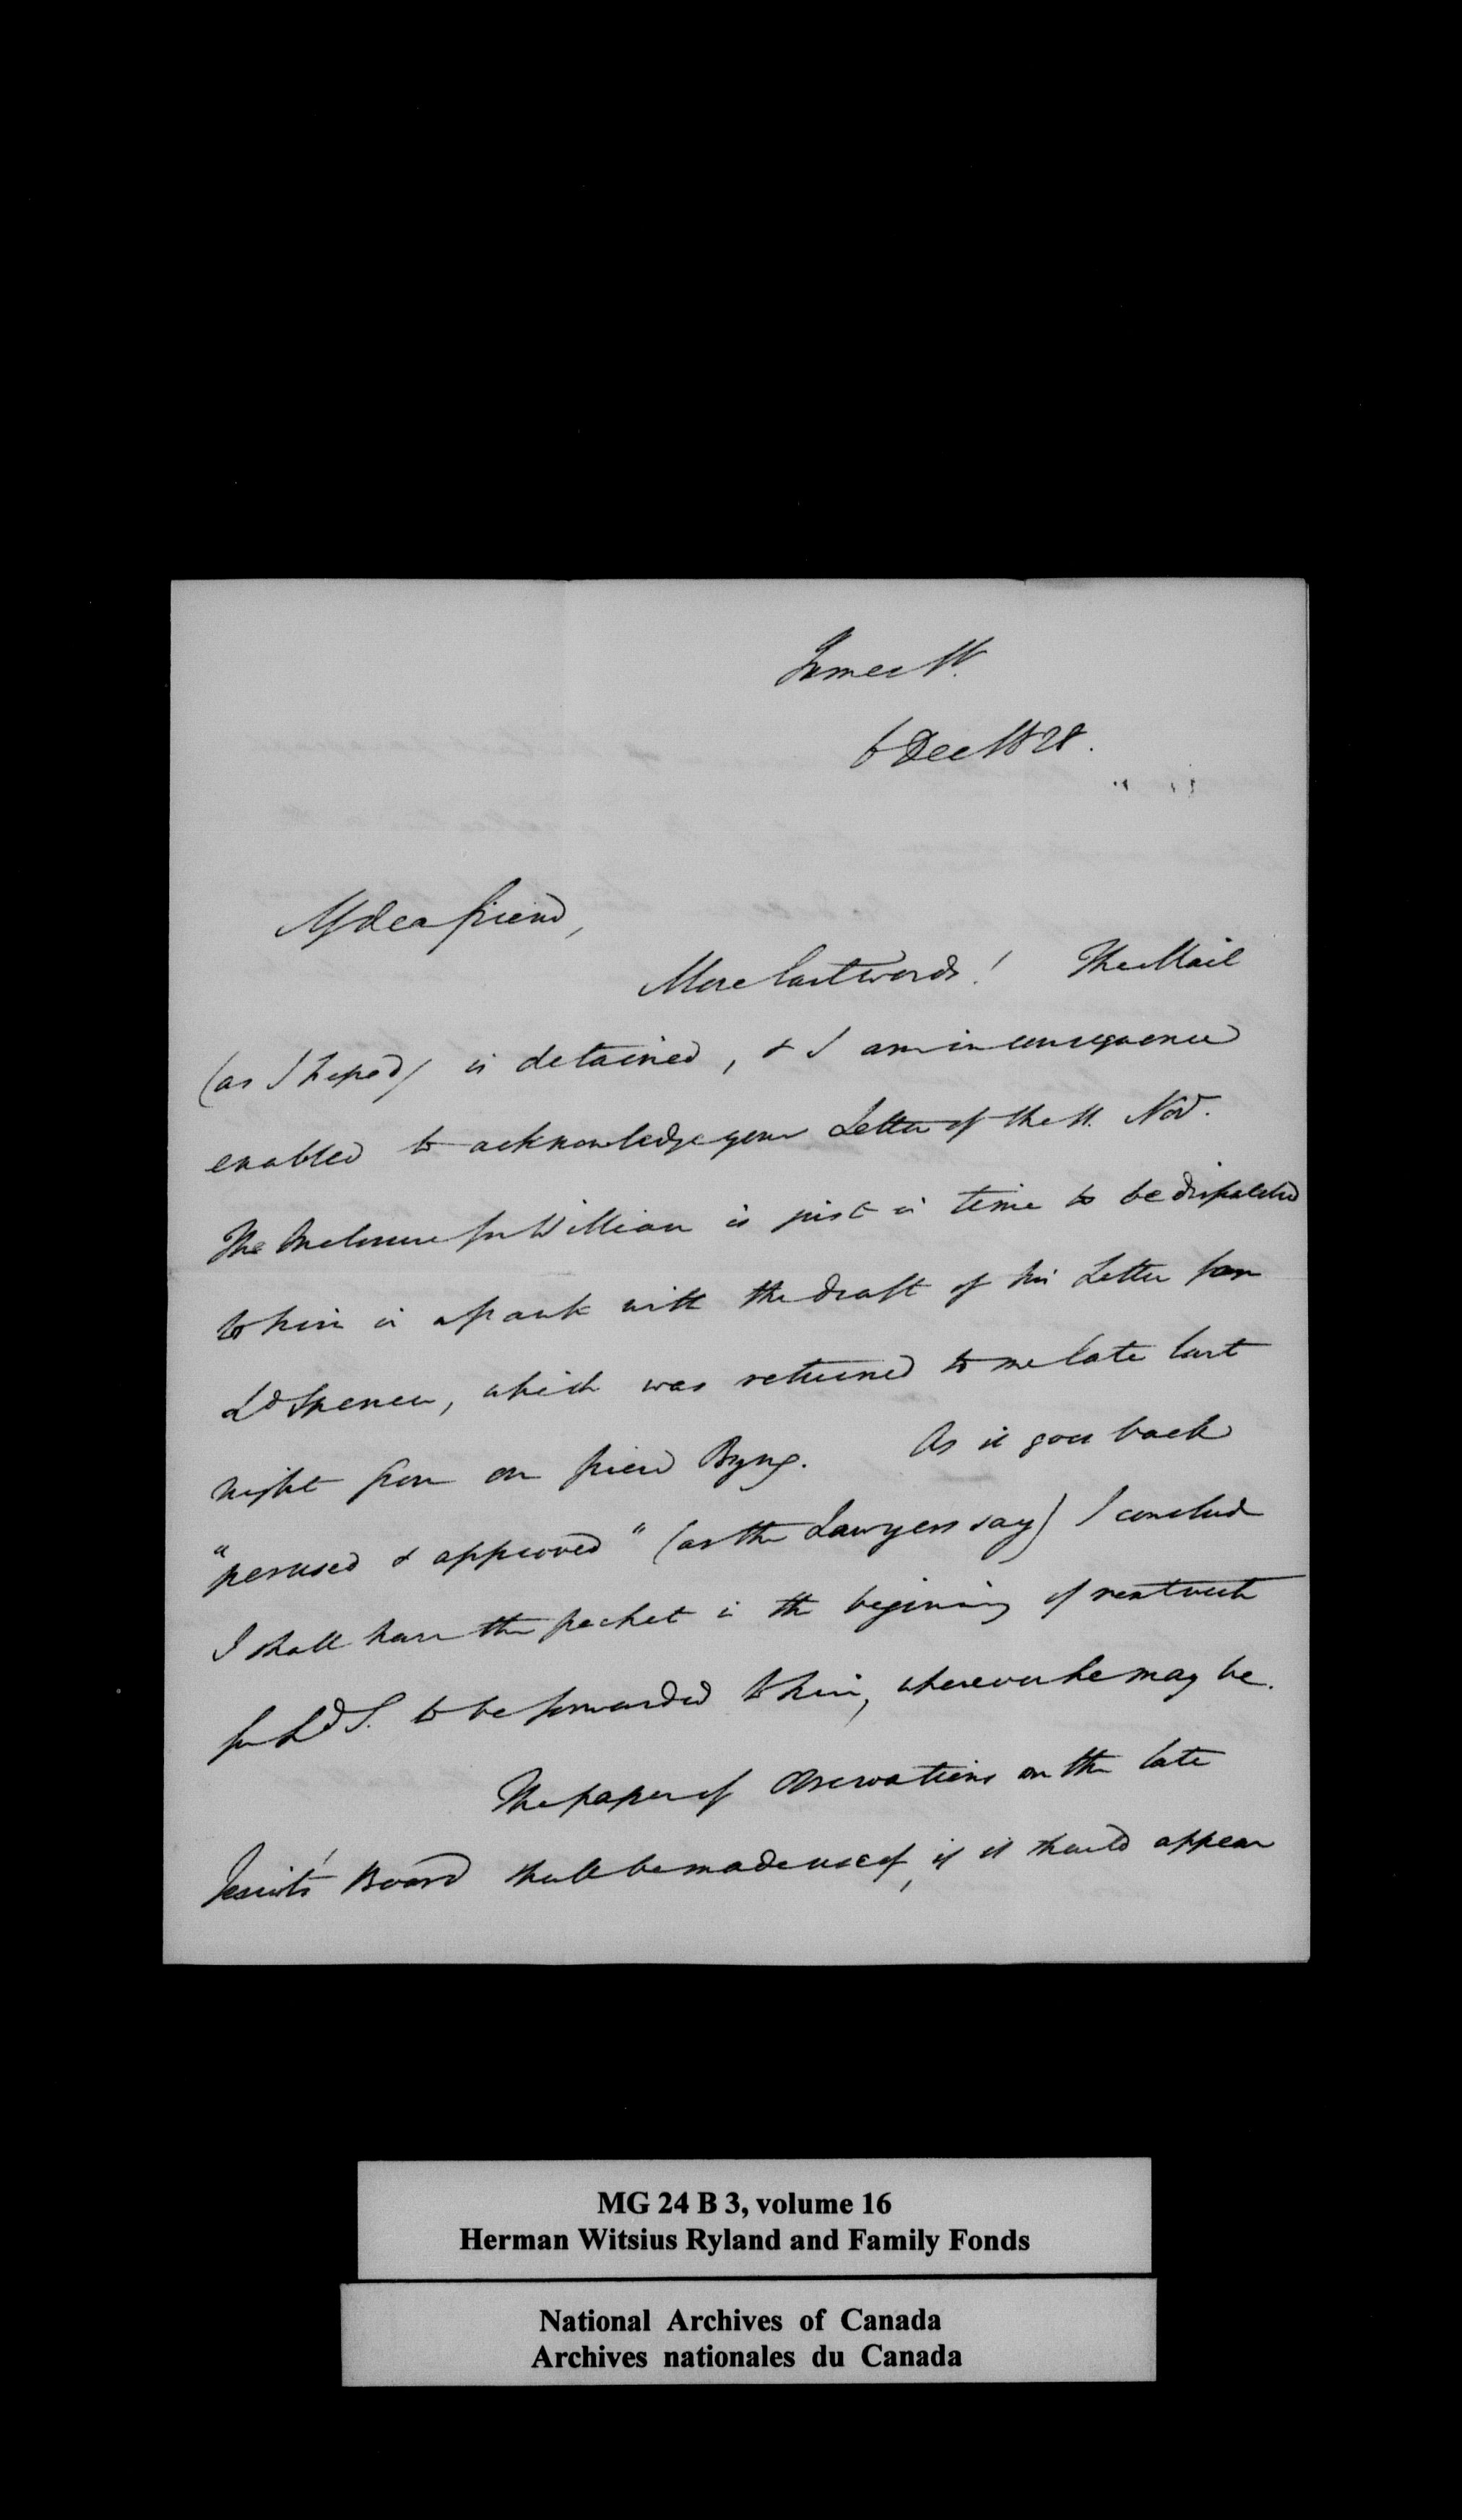 James St.
6 Dec 1828.
My dear friend,
More last words! The Mail
(as I hoped) is detained, & I am in consequence
enabled to acknowledge your Letter of the 11. Nov.
The Inclosure for William is just in time to be dispatched
to him in a frank with the draft of his Letter for
Ld Spencer, which was returned to me late last
night from our friend Byng. As it goes back
"perused & approved" (as the Lawyers say) I conclude
I shall have the packet in the beginning of next week
for Ld S. to be forwarded to him, wherever he may be.
The paper of Observations on the late
Jesuits' Board shall be made use of, if it should appear
MG 24 B 3, volume 16
Herman Witsius Ryland and Family Fonds
National Archives of Canada
Archives nationales du Canada